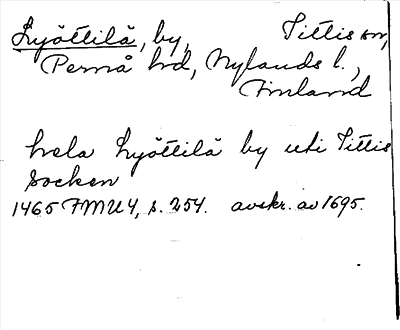 Lyöttilä, by, Tittis sn,
Pernå hd, Nylands l.,
Finland
hela Lyöttilä by uti Tittis
socken
1465 FMU 4, s. 254. avskr. av 1695.